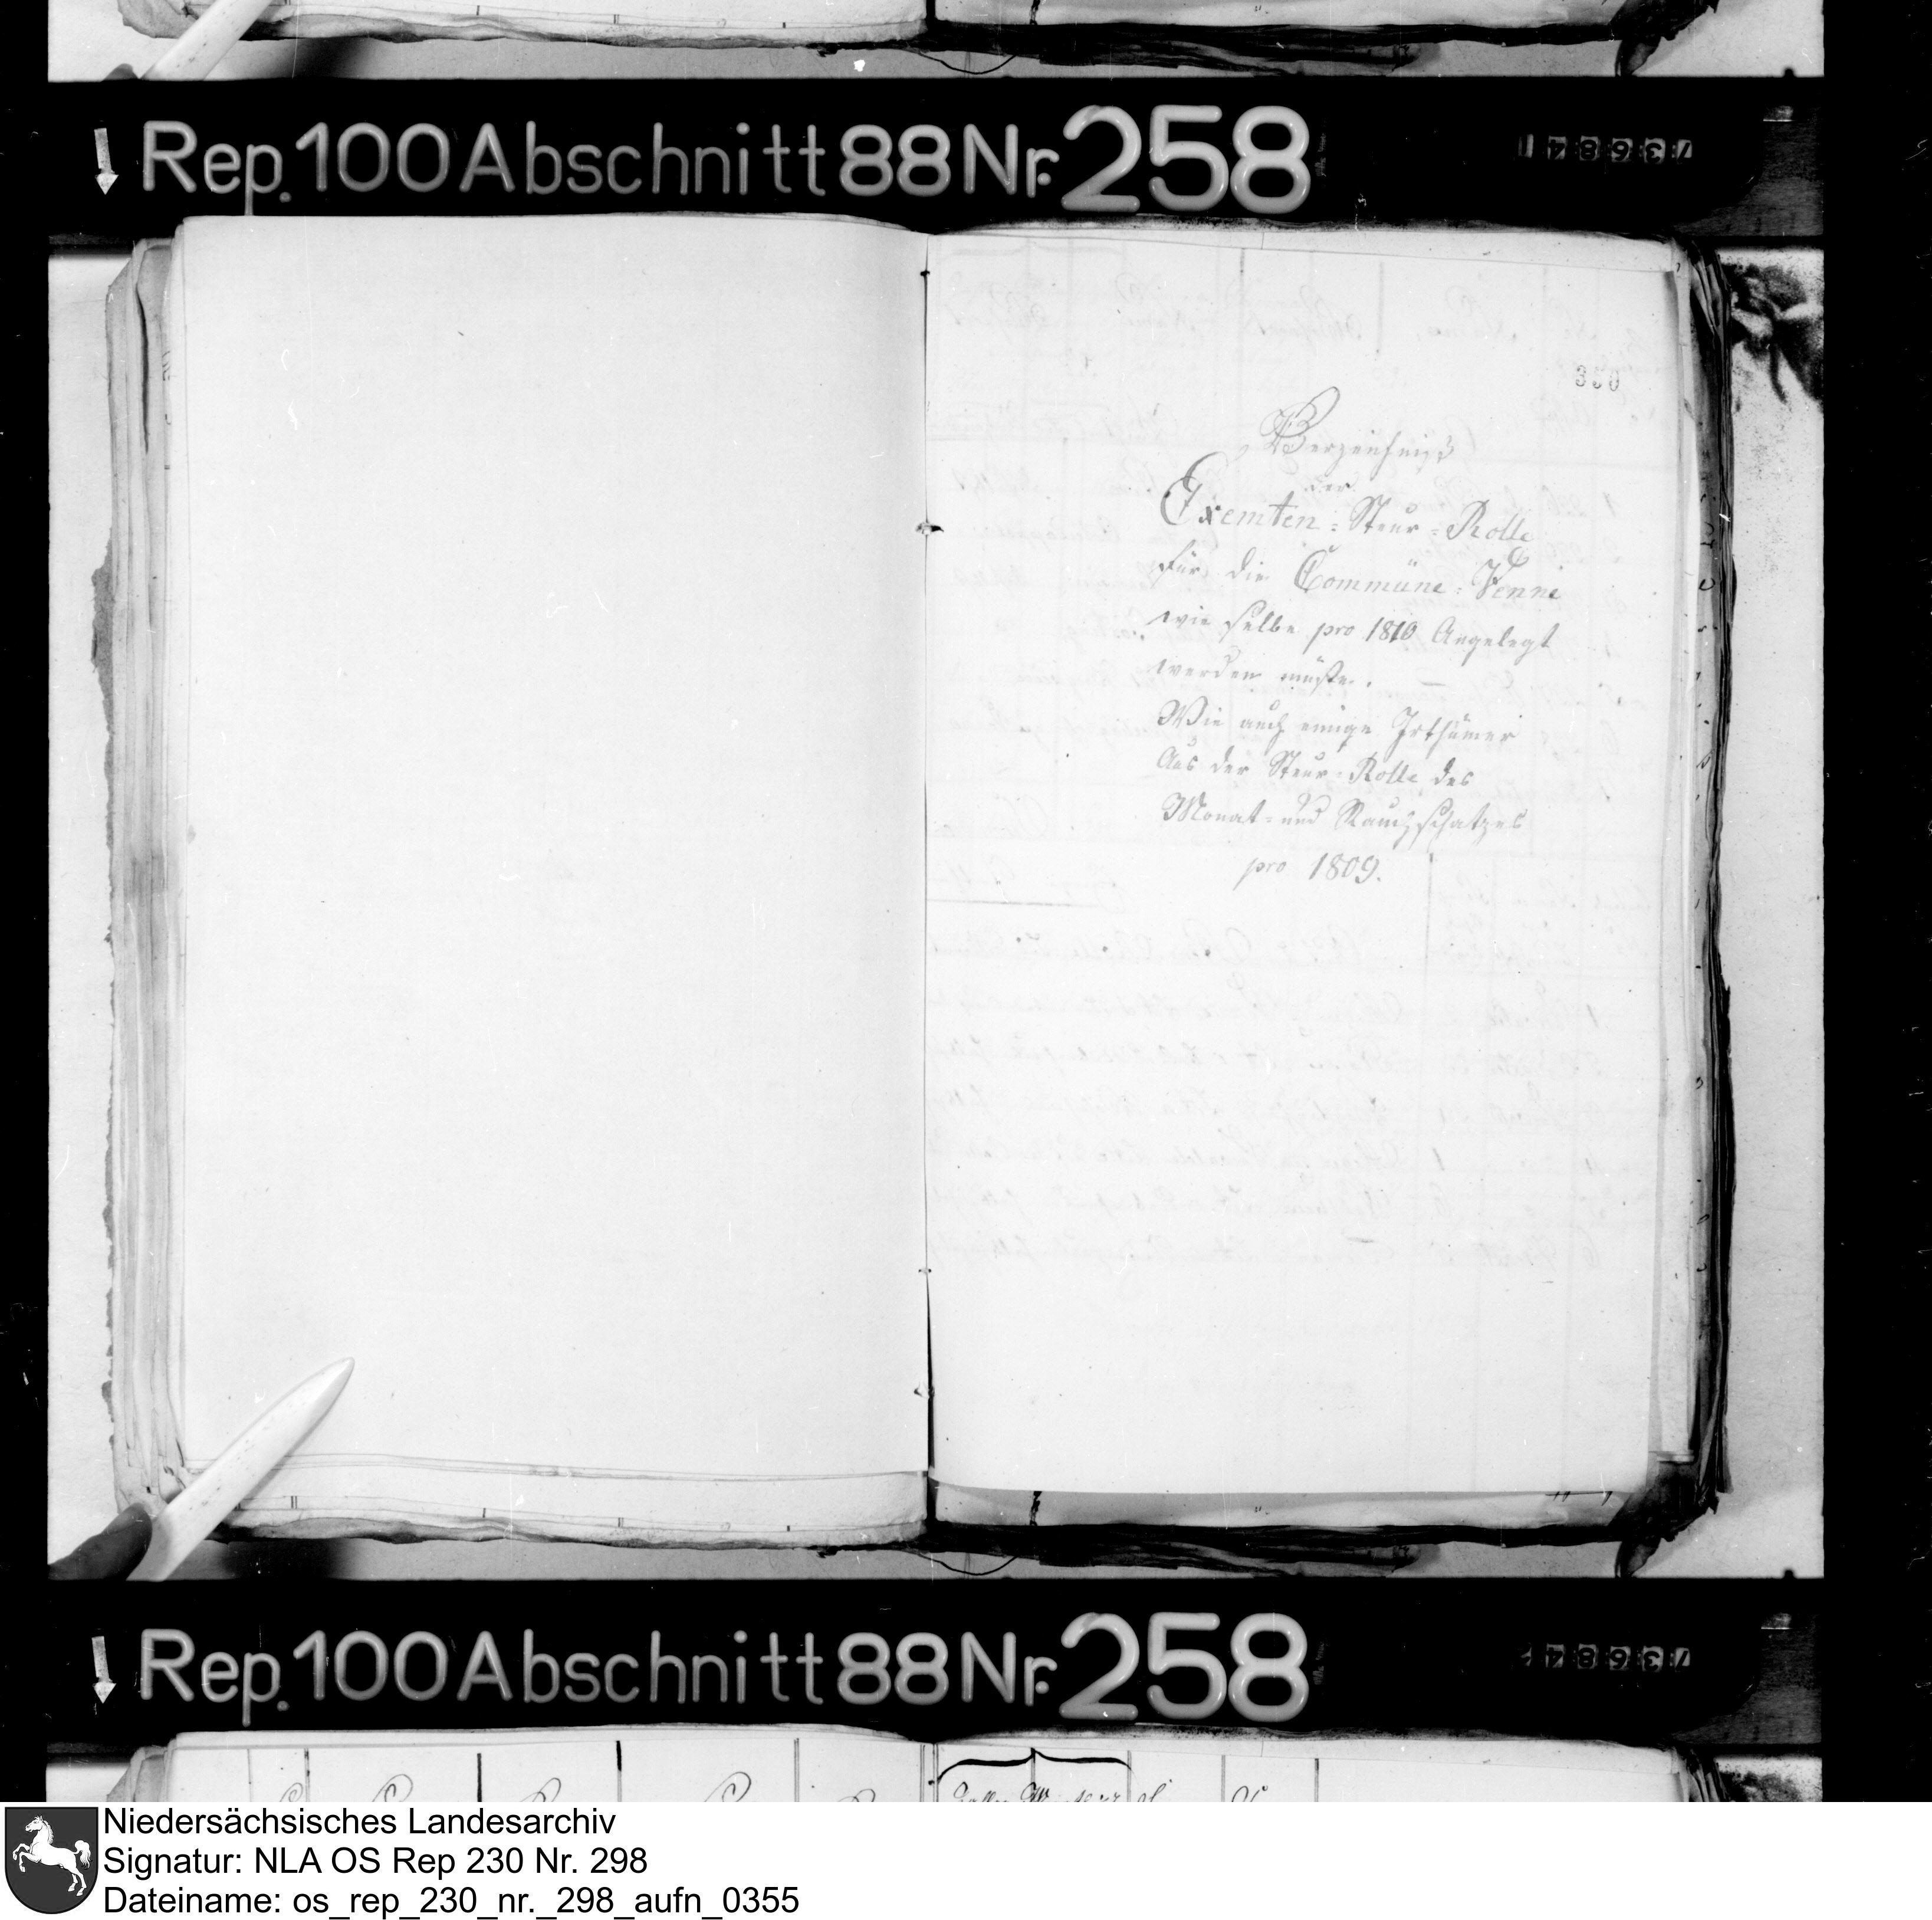 Rep. 100 Abschnitt 88 Nr. 258
73684
350
Verzeichniß
der
Exemten-Steur-Rolle
für die Commüne-Venne
wie selbe pro 1810 Angelegt
werden müste.
Wie auch einige Irthümer
Aus der Steur-Rolle des
Monat-und Rauchschatzes
pro 1809.
Rep. 100 Abschnitt 88 Nr. 258
73684
Niedersächsisches Landesarchiv
Signatur: NLA OS Rep 230 Nr. 298
Dateiname: os_rep_230_nr._298_aufn_0355